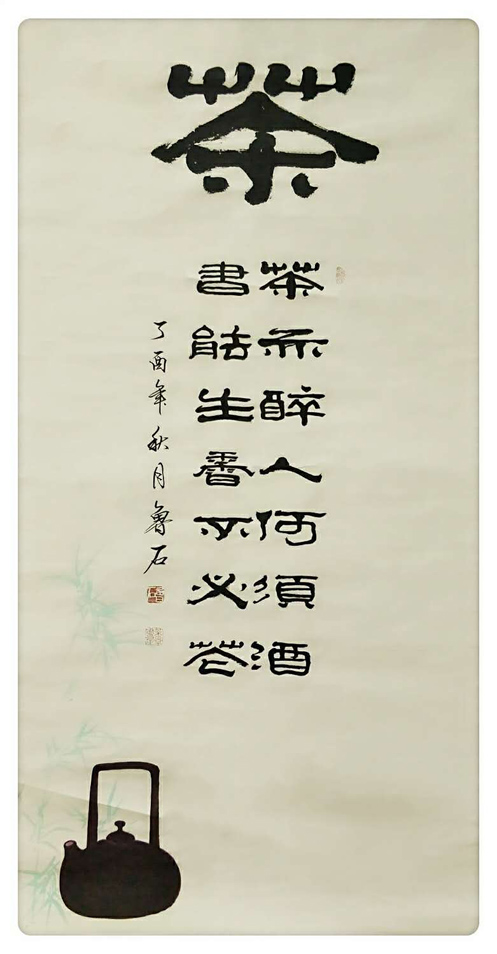 茶
茶亦醉人何須酒
書能生香不必花
丁酉年秋月魯石